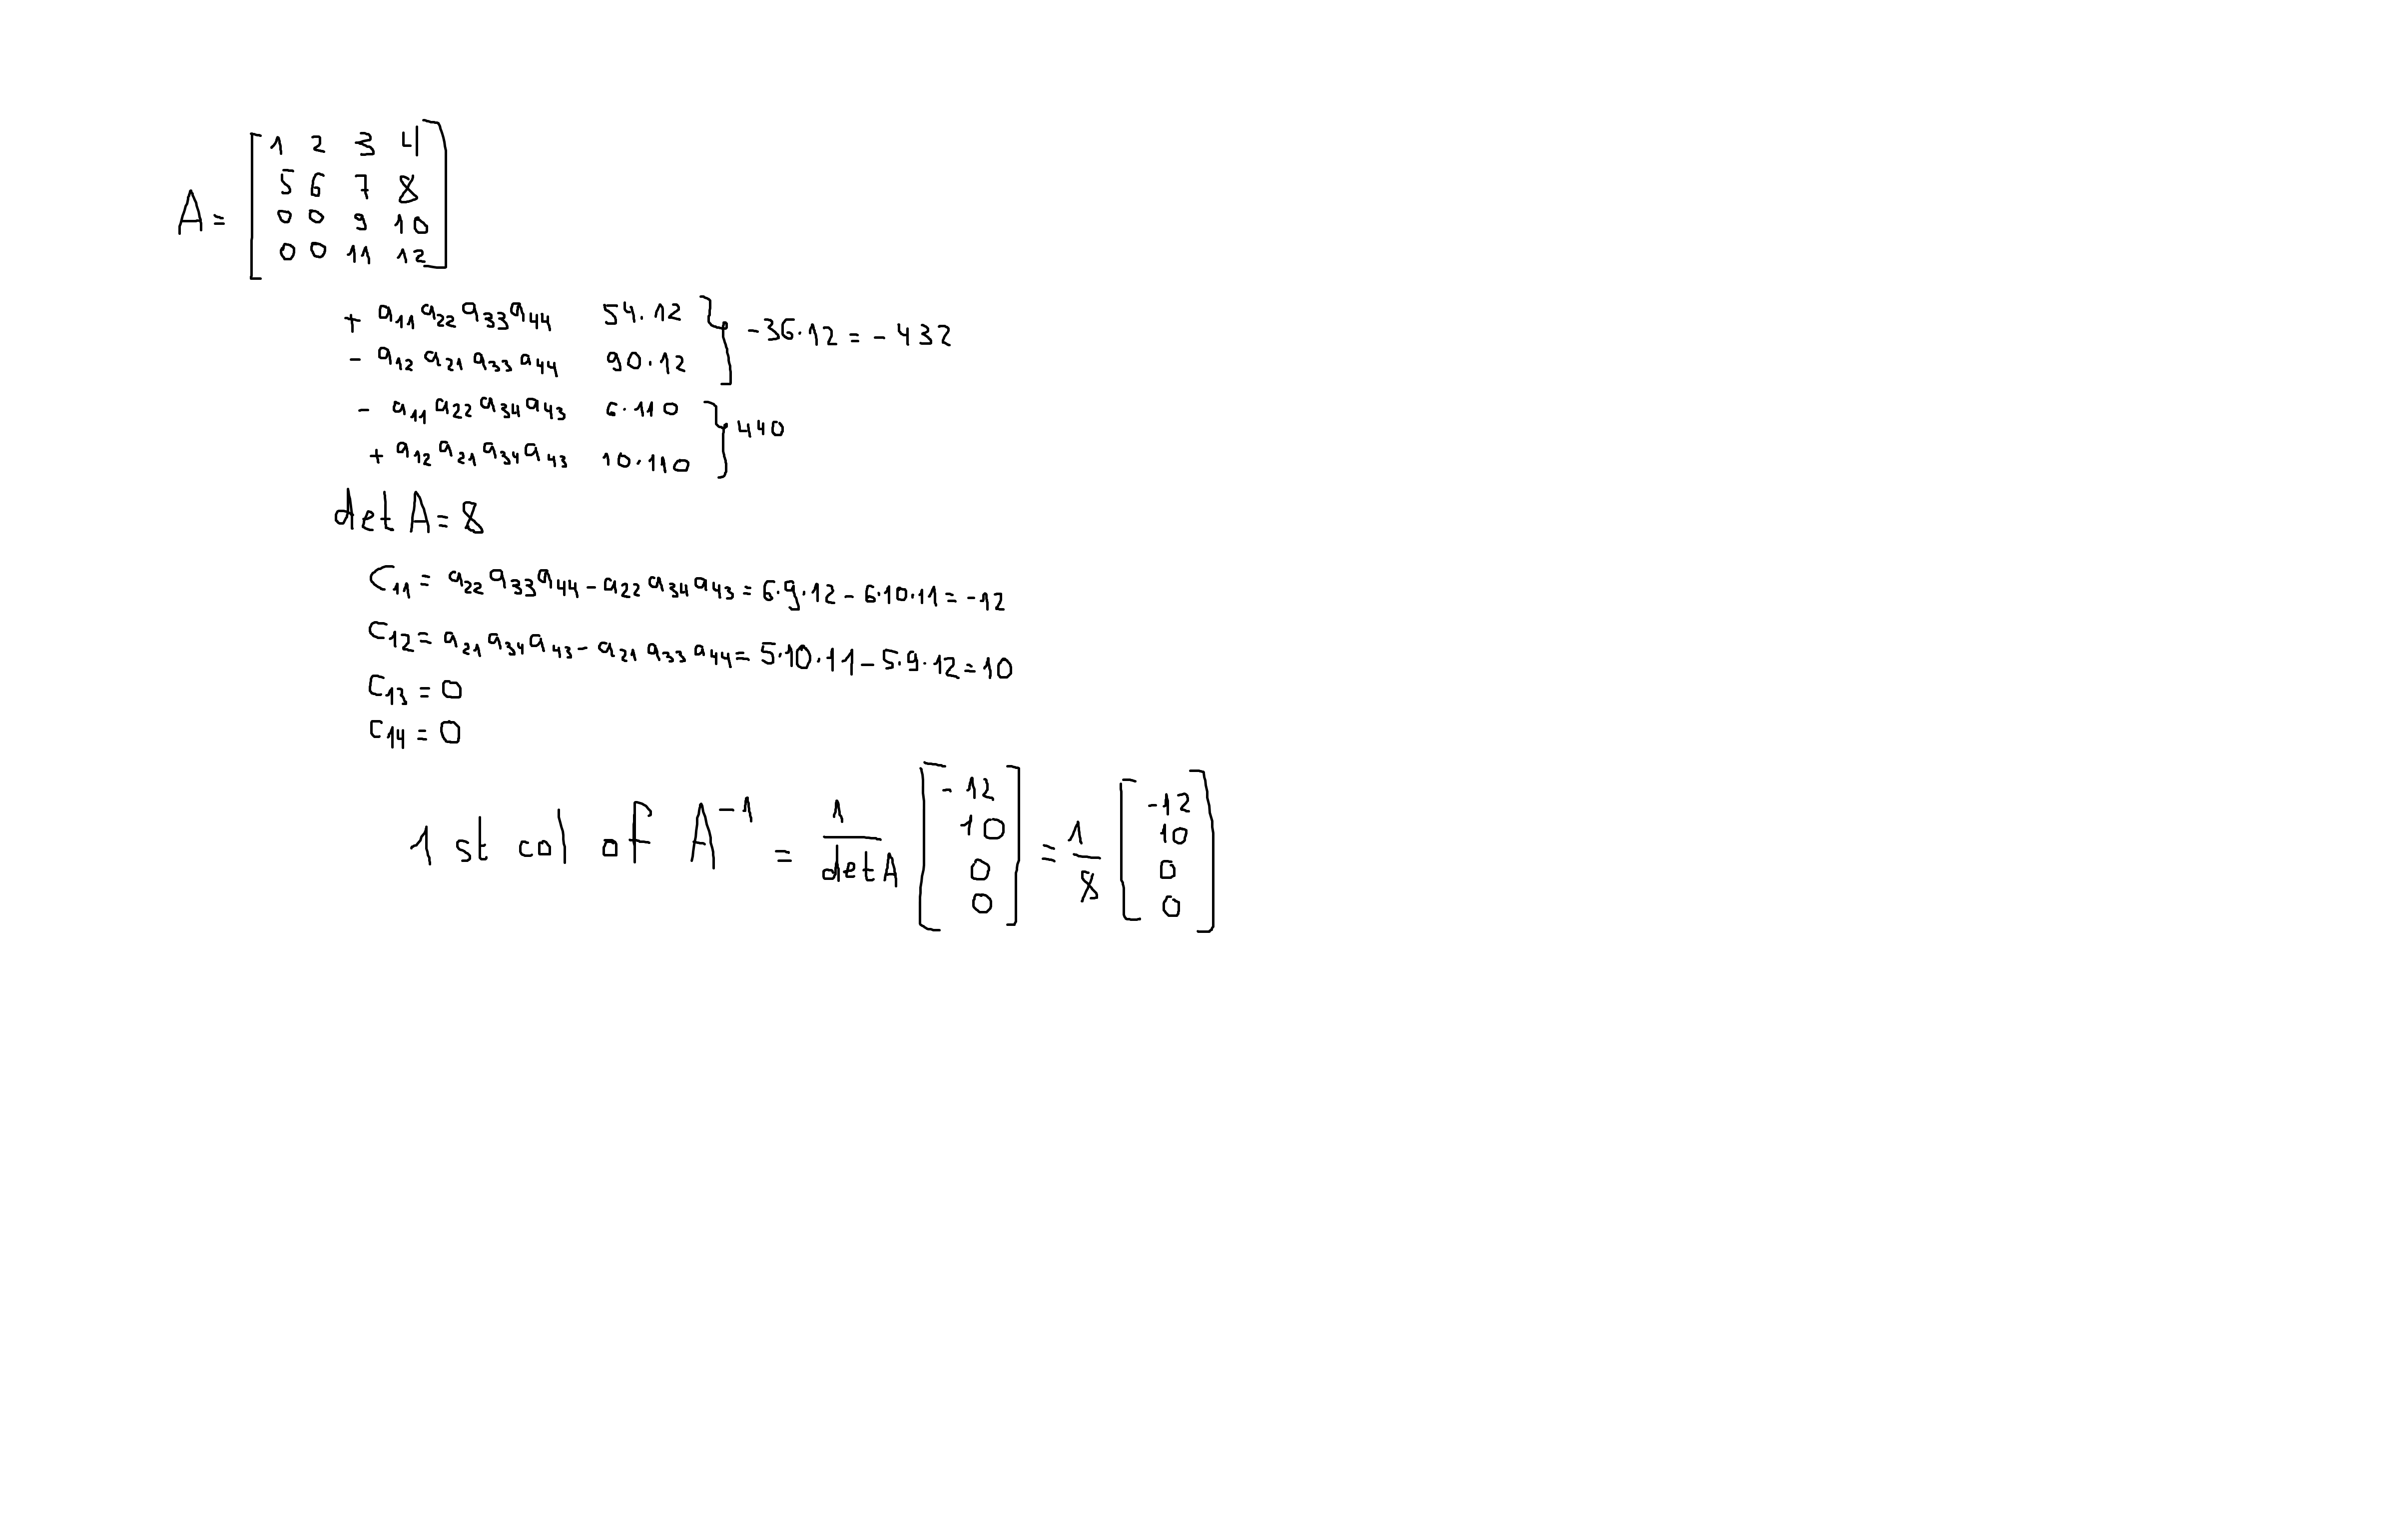 A = [ 1 2 3 4
5 6 7 8
0 0 9 10
0 0 11 12 ]
+ a11 a22 a33 a44 54.12 } -36.12 = - 432
- a12 a21 a33 a44 90.12
- a11 a22 a34 a43 6.110 } 440
+ a12 a21 a34 a43 10.110
det A = 8
C11 = a22 a33 a44 - a22 a34 a43 = 6·9·12 - 6·10·11 = -12
C12 = a21 a34 a43 - a21 a33 a44 = 5·10·11 - 5·9·12 = 10
C13 = 0
C14 = 0
1 st col of A^-1 = 1/det A [ -12 10 0 0 ] = 1/8 [ -12 10 0 0 ]